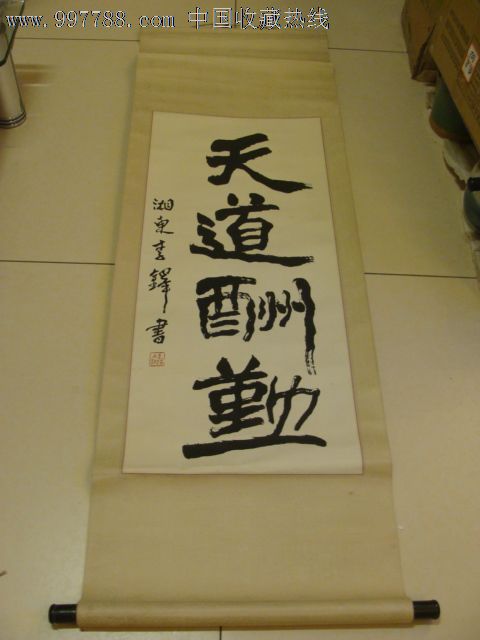 www.997788.com 中国收藏热线
天道酬勤
湘東李鐸書